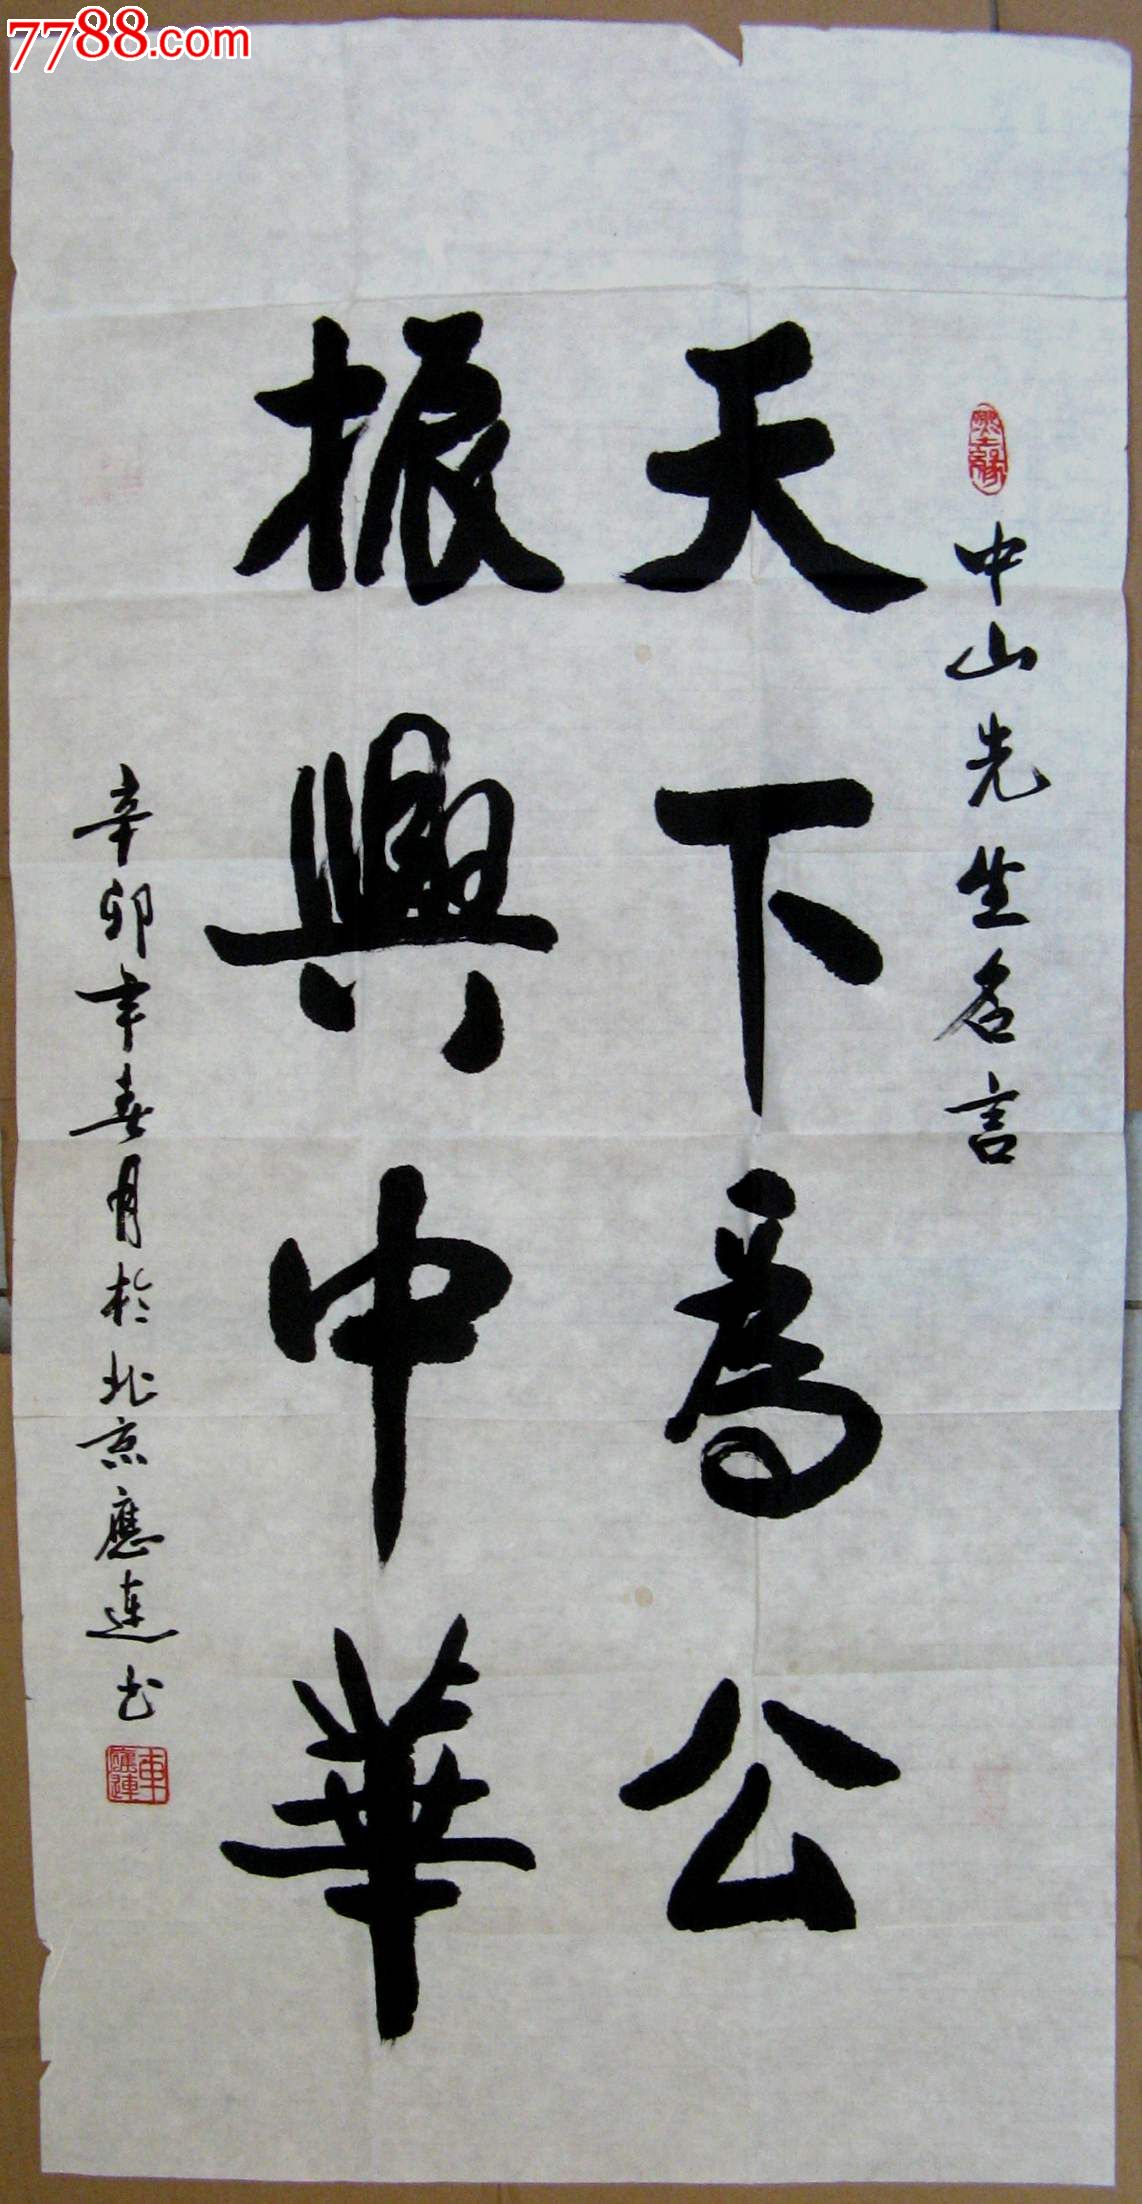 7788.com
墨缘
中山先生名言
天下為公
振興中華
辛卯年春月於北京應連书
車應連